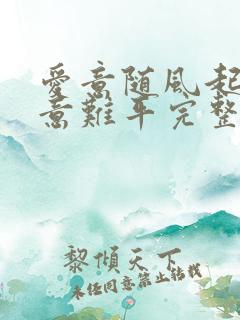 愛意随風起
意難平完整
黎傾天下
未经同意禁止转载